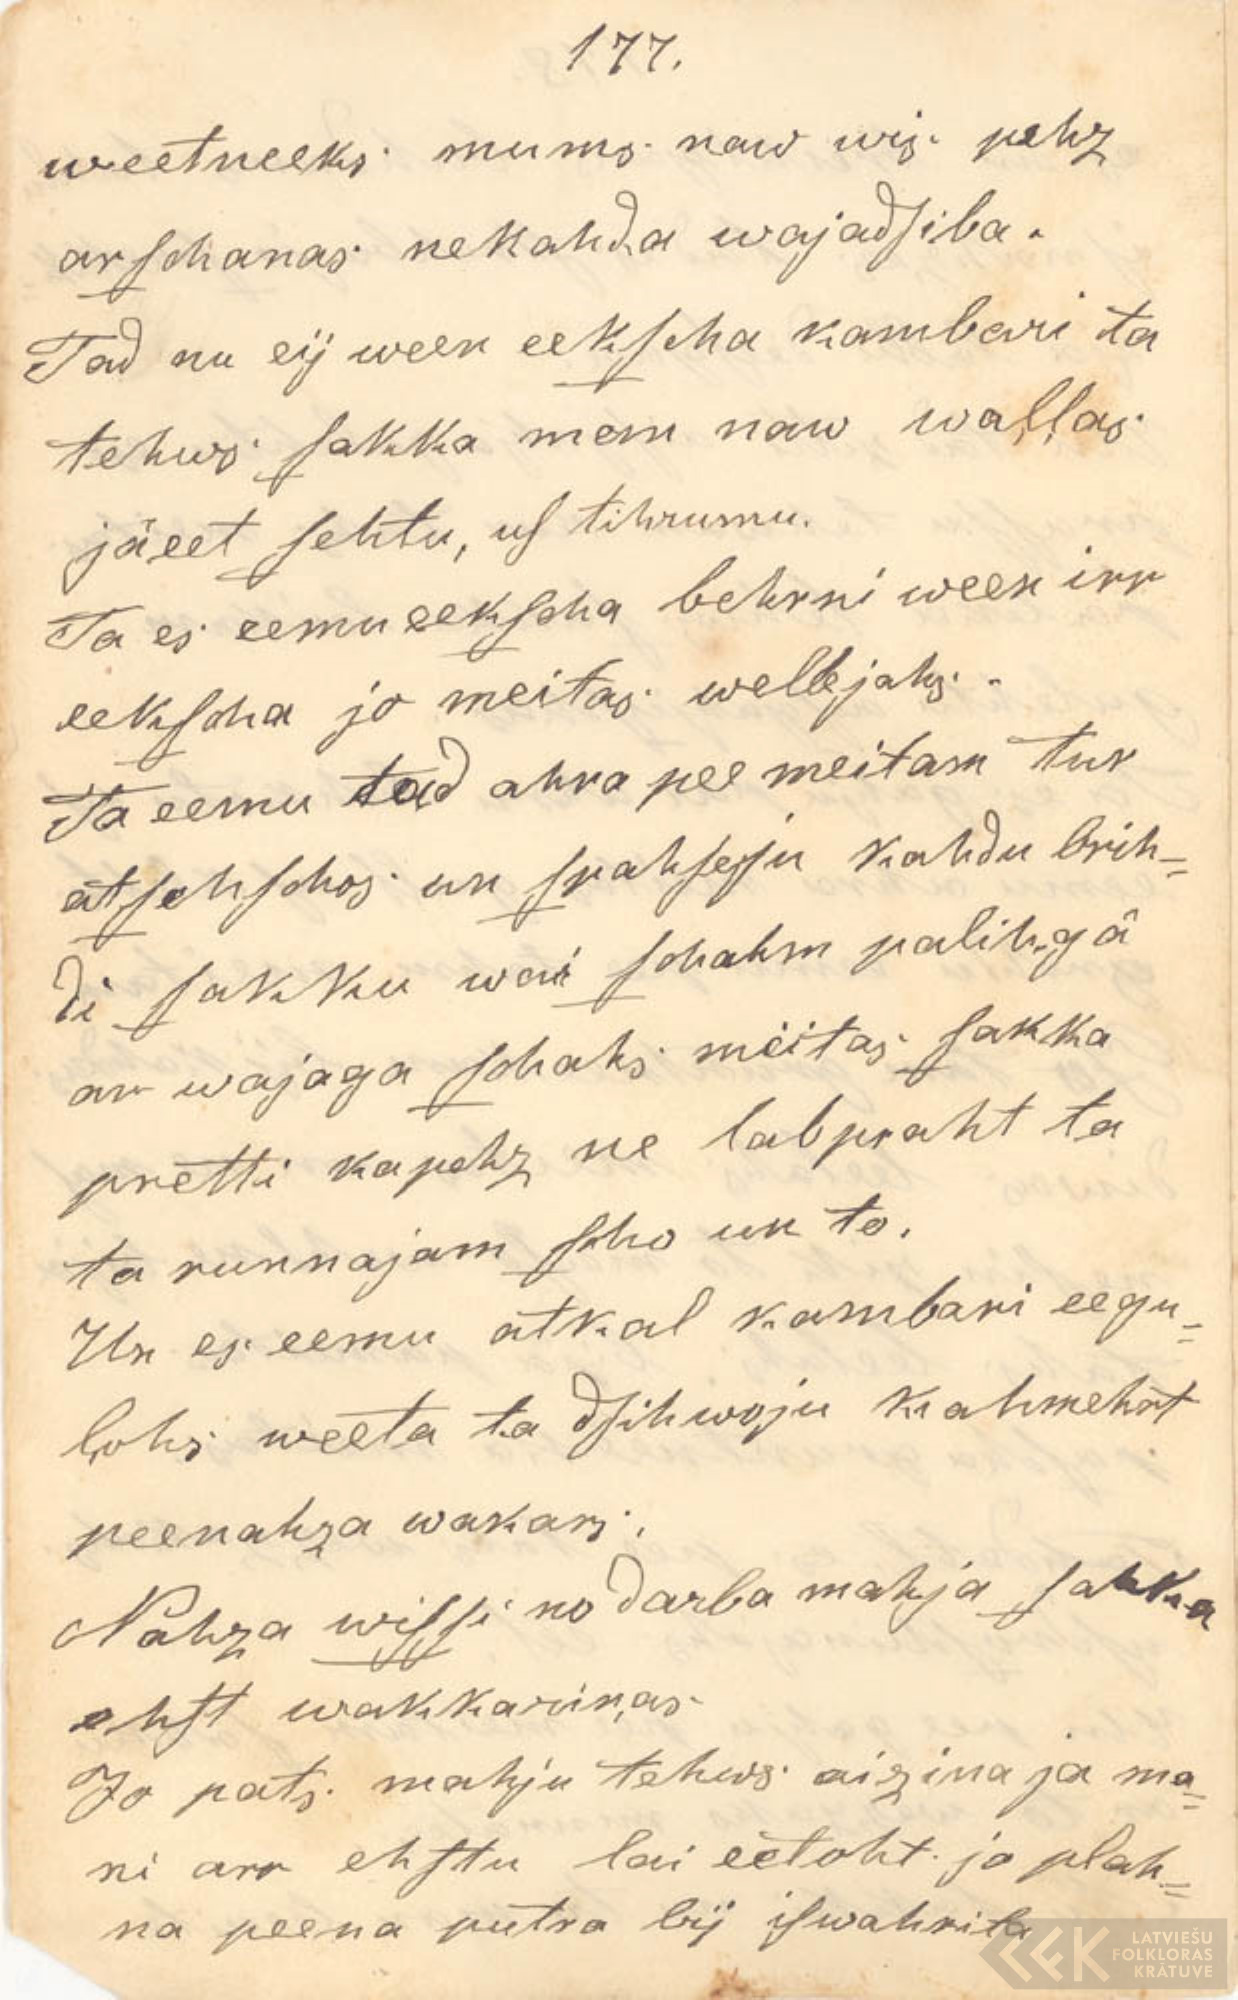 177.
weetneeks mums naw wis pehz
arſchanas nekahda wajadſiba.
Tad nu eij ween eekſcha kambari ta
tehws ſakka mem naw waļļas
jäeet ſehtu, uſ tihrumu.
Ta es eemu eekſcha behrni ween irr
eekſcha jo meitas wellejahs.
Ta eemu tad ahra pee meitam tur
atſehſchos un ſpahſeſju kahdu brih=
di ſakku wai ſchahm palihgâ
ar wajaga ſchahs meitas ſakka
pretti kapehz ne labpraht ta
ta runnajam ſcho un to.
Un es eemu atkal kambari eegu=
lohs weeta ta dſihwoju kahmehrt
peenahza wakars.
Nahza wiſſi no darba mahja ſahka
ehſt wakkariņas
Jo pats mahju tehws aizinaja ma=
ni arr ehſtu lai eetoht jo plah=
na peena putra bij iſwahrita
LATVIEŠU
FOLKLORAS
KRĀTUVE